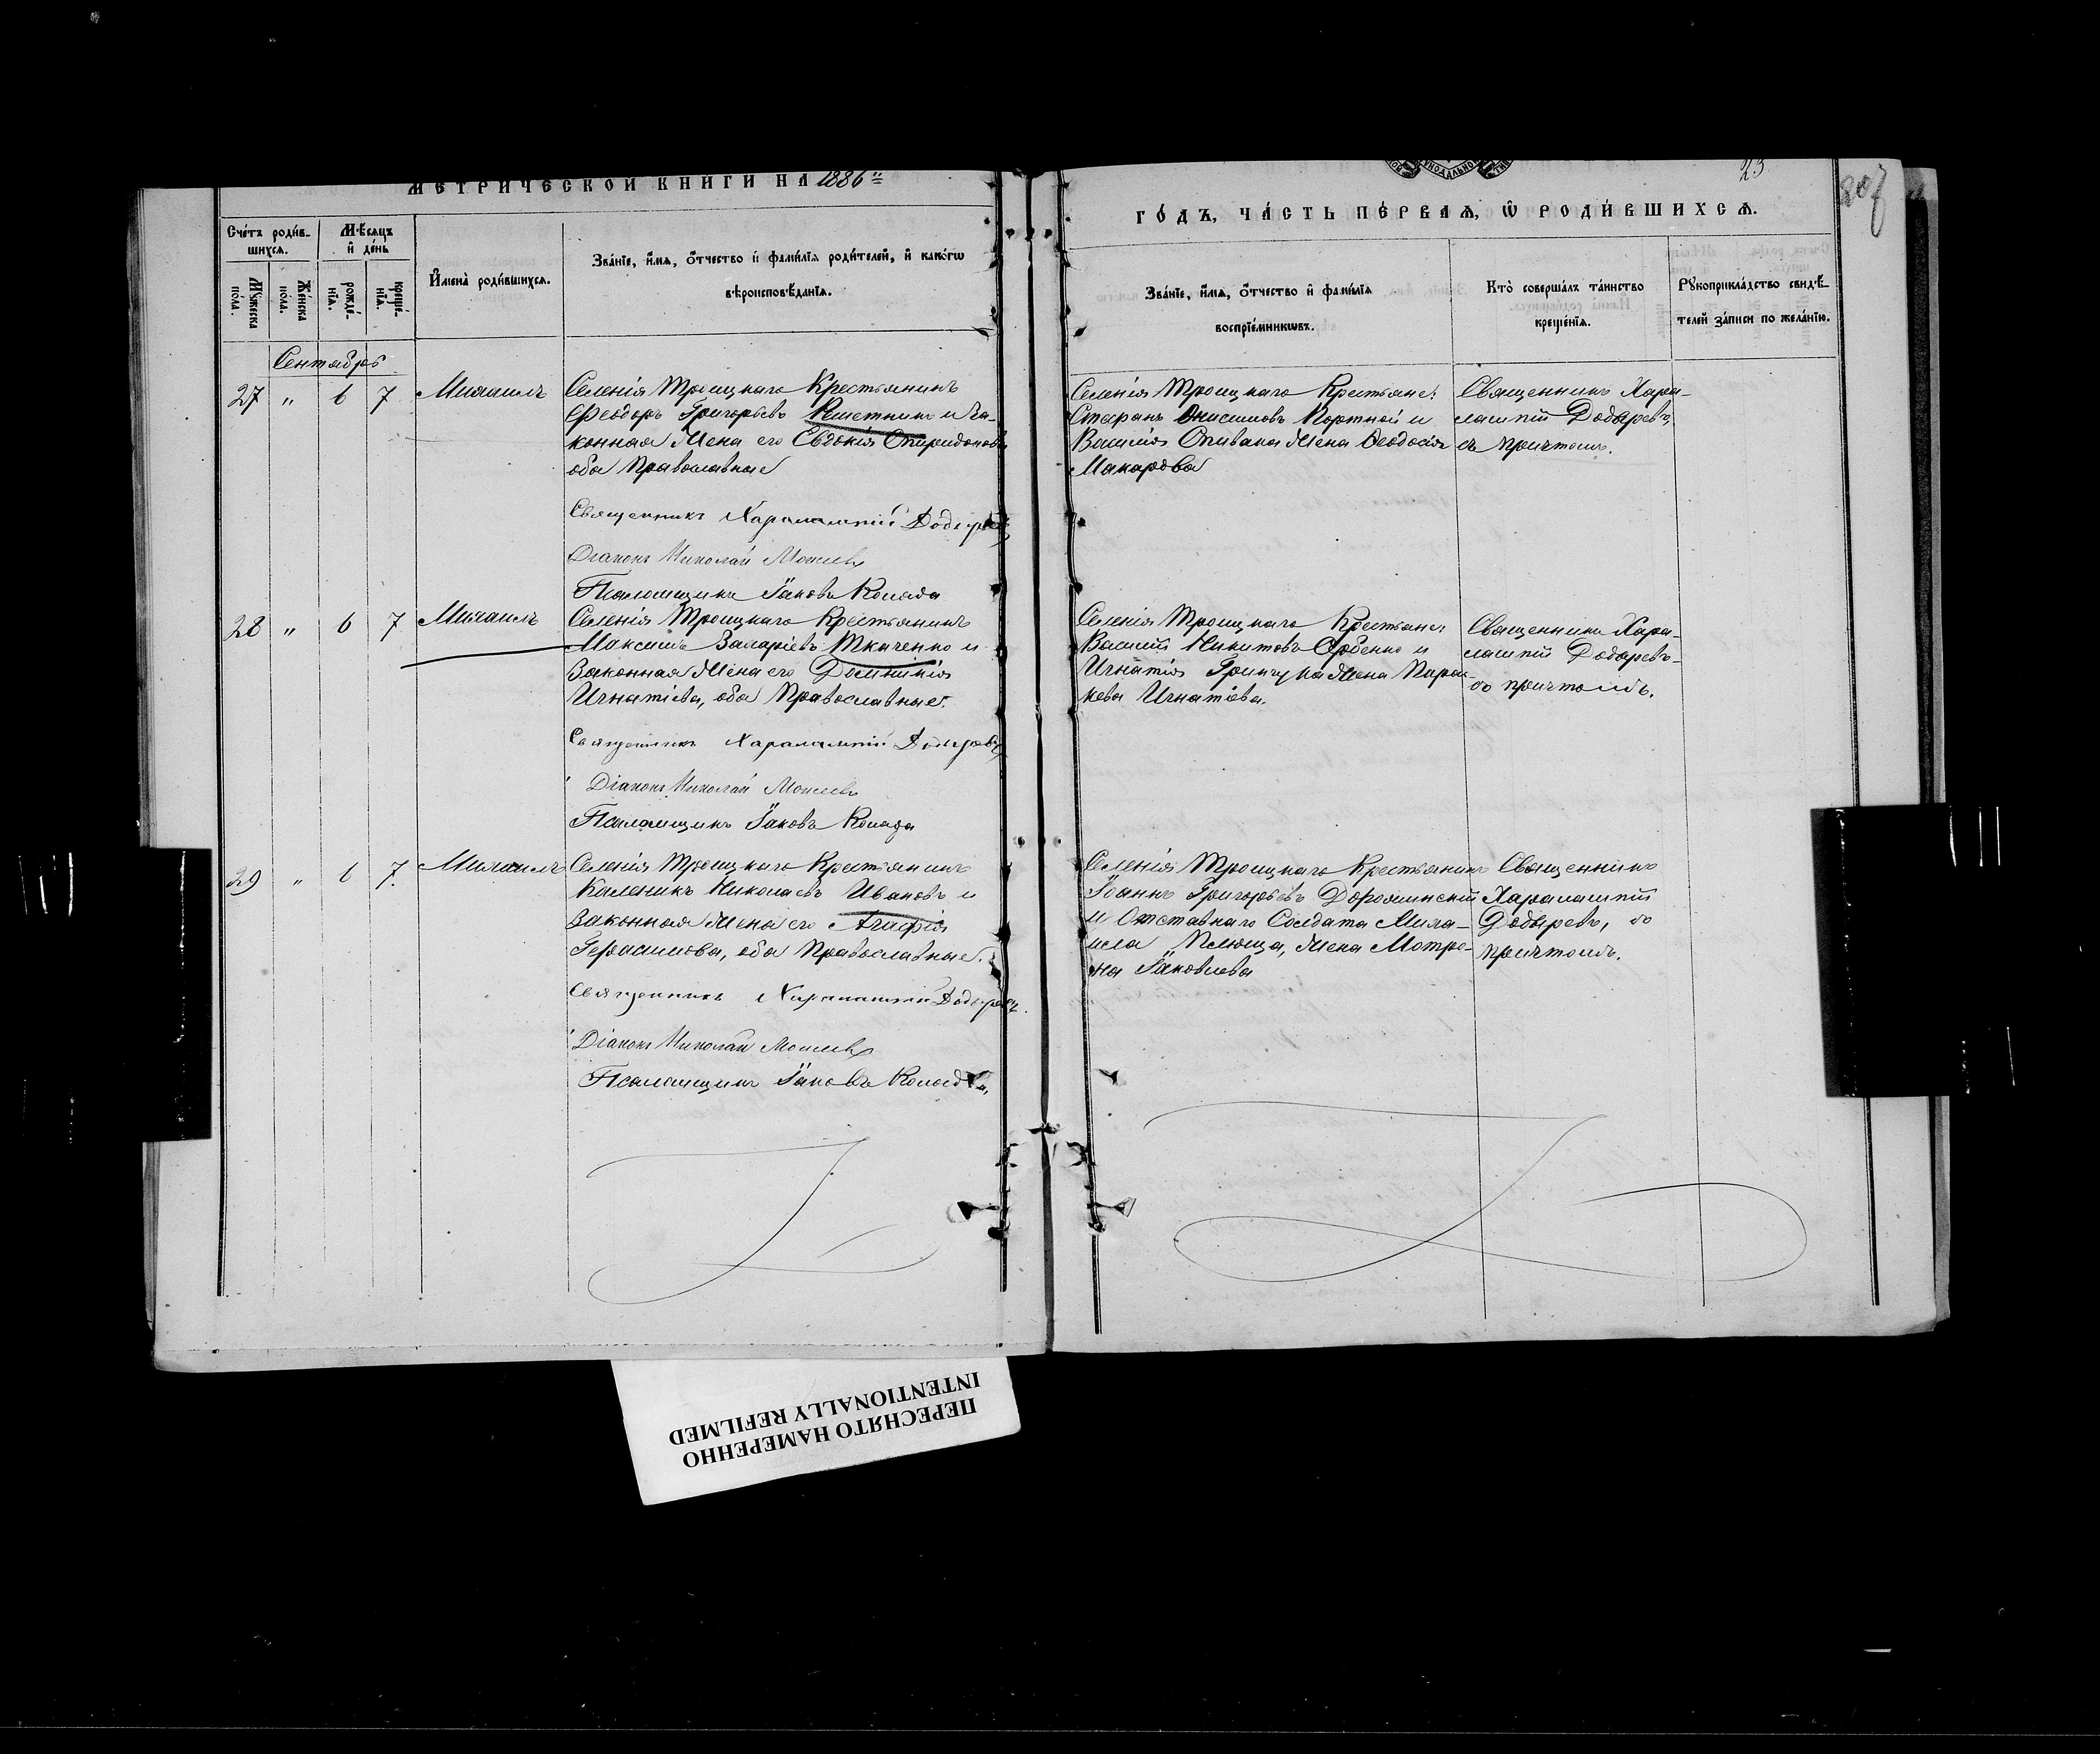 МЕТРИЧЕСКОЙ КНИГИ НА 1886
Сче́тъ роди́в-
шихсѧ.
Мꙋ́жеска по́ла.
Же́нска по́ла.
Мѣ́сѧцъ
и҆ де́нь
рожде́-
нїѧ.
креще́-
нїѧ.
И҆мена̀ роди́вшихсѧ.
Зва́нїе, и҆́мѧ, ѻ҆́тчество и҆ фами́лїѧ роди́телей, и҆ како́гѡ
вѣроисповѣ́данїѧ.
Сентябрь
27 " 6 7 Михаилъ
Селенія Троицкаго Крестьянинъ
Ѳеодоръ Григорьевъ Решетникъ и За-
конная Жена его Евдокія Спиридонова
оба Православные
Священникъ Харалампій
Діаконъ Николай
Псаломщикъ Іаковъ
28 " 6 7 Михаилъ
Селенія Троицкаго Крестьянинъ
Максимъ Захаріевъ Ткаченко и
Законная Жена его Домникія
Игнатіева, оба Православные.
Священникъ Харалампій
Діаконъ Николай
Псаломщикъ Іаковъ
29 " 6 7 Михаилъ
Селенія Троицкаго Крестьянинъ
Каленикъ Николаевъ Ивановъ и
Законная Жена его Агафія
Герасимова, оба Православные.
Священникъ Харалампій
Діаконъ Николай
Псаломщикъ Іаковъ
23
207
ГО́ДЪ, ЧА́СТЬ ПЕ́РВАѦ, Ѡ҆ РОДИ́ВШИХСѦ.
Зва́нїе, и҆́мѧ, ѻ҆́тчество и҆ фами́лїѧ
воспрїе́мникѡвъ.
Кто̀ соверша́лъ та́инство
креще́нїѧ.
Рꙋкоприкла́дство свидѣ́-
телей за́писи по жела́нїю.
Селенія Троицкаго Крестьяне:
Стефанъ Онисимовъ Портной и
Василія Спивака Жена Ѳеодосія
Макарова
Священникъ Хара-
лампій
съ причтомъ.
Селенія Троицкаго Крестьяне:
Василій Никитовъ и
Игнатія Жена Парас-
кева Игнатіева.
Священникъ Хара-
лампій
со причтомъ.
Селенія Троицкаго Крестьянинъ
Іоаннъ Григорьевъ Дорошинскій
и Отставнаго Солдата Миха-
ила Плюща, Жена Мотро-
на Іаковлева
Священникъ
Харалампій
со
причтомъ.
ПЕРЕСНЯТО НАМЕРЕННО
INTENTIONALLY REFILMED